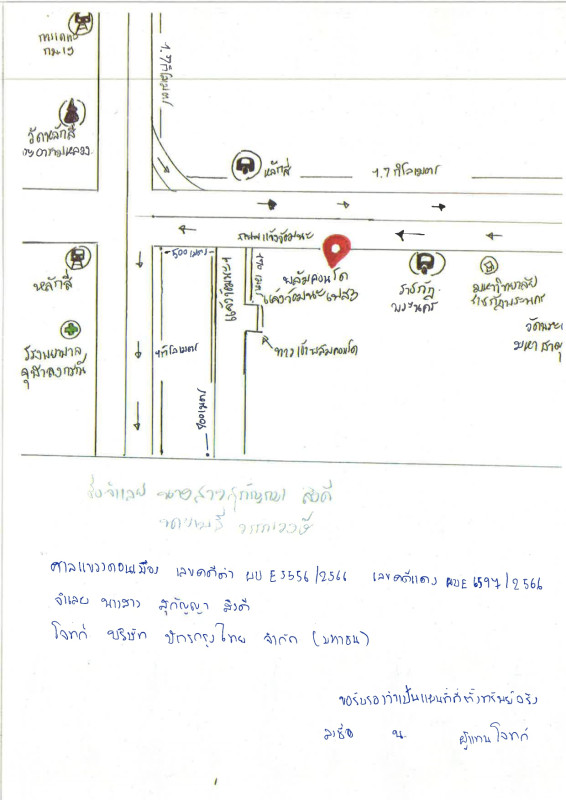 กม.19
1.7 กิโลเมตร
วัดหลักสี่
หลักสี่
1.7 กิโลเมตร
ถนนแจ้งวัฒนะ
500 เมตร
หลักสี่
พลัมคอนโด
แจ้งวัฒนะ
ราชภัฏ
พระนคร
มหาวิทยาลัย
ราชภัฏพระนคร
วัดพระ
มหาธาตุ
ทางเข้าพลัมคอนโด
โรงพยาบาล
จุฬาลงกรณ์
1 กิโลเมตร
800 เมตร
ซึ่งจำเลย นางสาวสุกัญญา สิงดี
ศาลแขวงดอนเมือง เลขคดีดำ ผบE3556/2566 เลขคดีแดง ผบE6597/2566
จำเลย นางสาว สุกัญญา สิงดี
โจทก์ บริษัท บัตรกรุงไทย จำกัด (มหาชน)
ขอรับรองว่าเป็นแผนที่ที่ตั้งทรัพย์จริง
ลงชื่อ น. ผู้แทนโจทก์